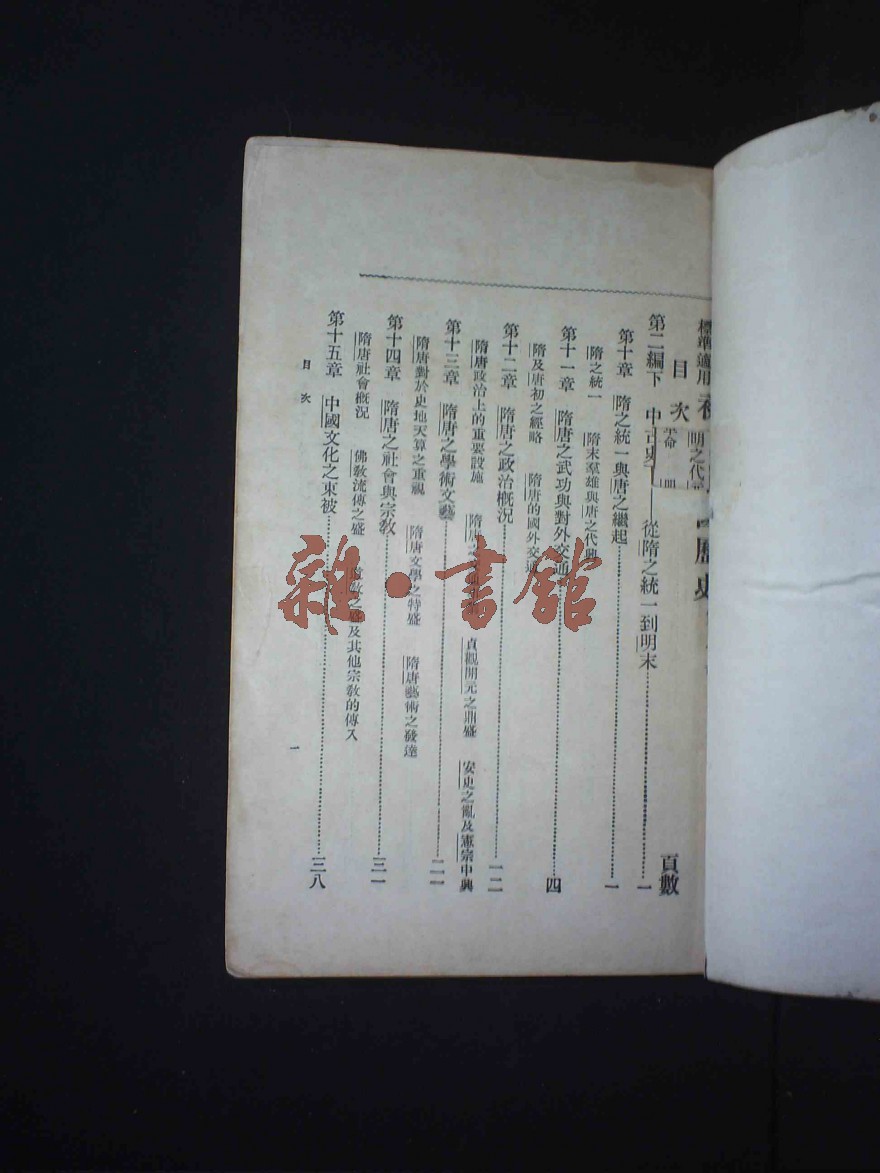 標準適用
歷史
目次
明之代
革命
頁數
第二編下 中古史 從隋之統一到明末 一
第十章 隋之統一與唐之繼起 一
隋之統一 隋末羣雄與唐之代興
第十一章 隋唐之武功與對外交通 四
隋及唐初之經略 隋唐的國外交通
第十二章 隋唐之政治概況 一二
隋唐政治上的重要設施 隋唐 貞觀開元之鼎盛 安史之亂及憲宗中興
第十三章 隋唐之學術文藝 二二
隋唐對於史地天算之重視 隋唐文學之特盛 隋唐藝術之發達
第十四章 隋唐之社會與宗教 三一
隋唐社會概況 佛教流傳之盛 之盛及其他宗教的傳入
第十五章 中國文化之東被 三八
目次
一
雜·書館